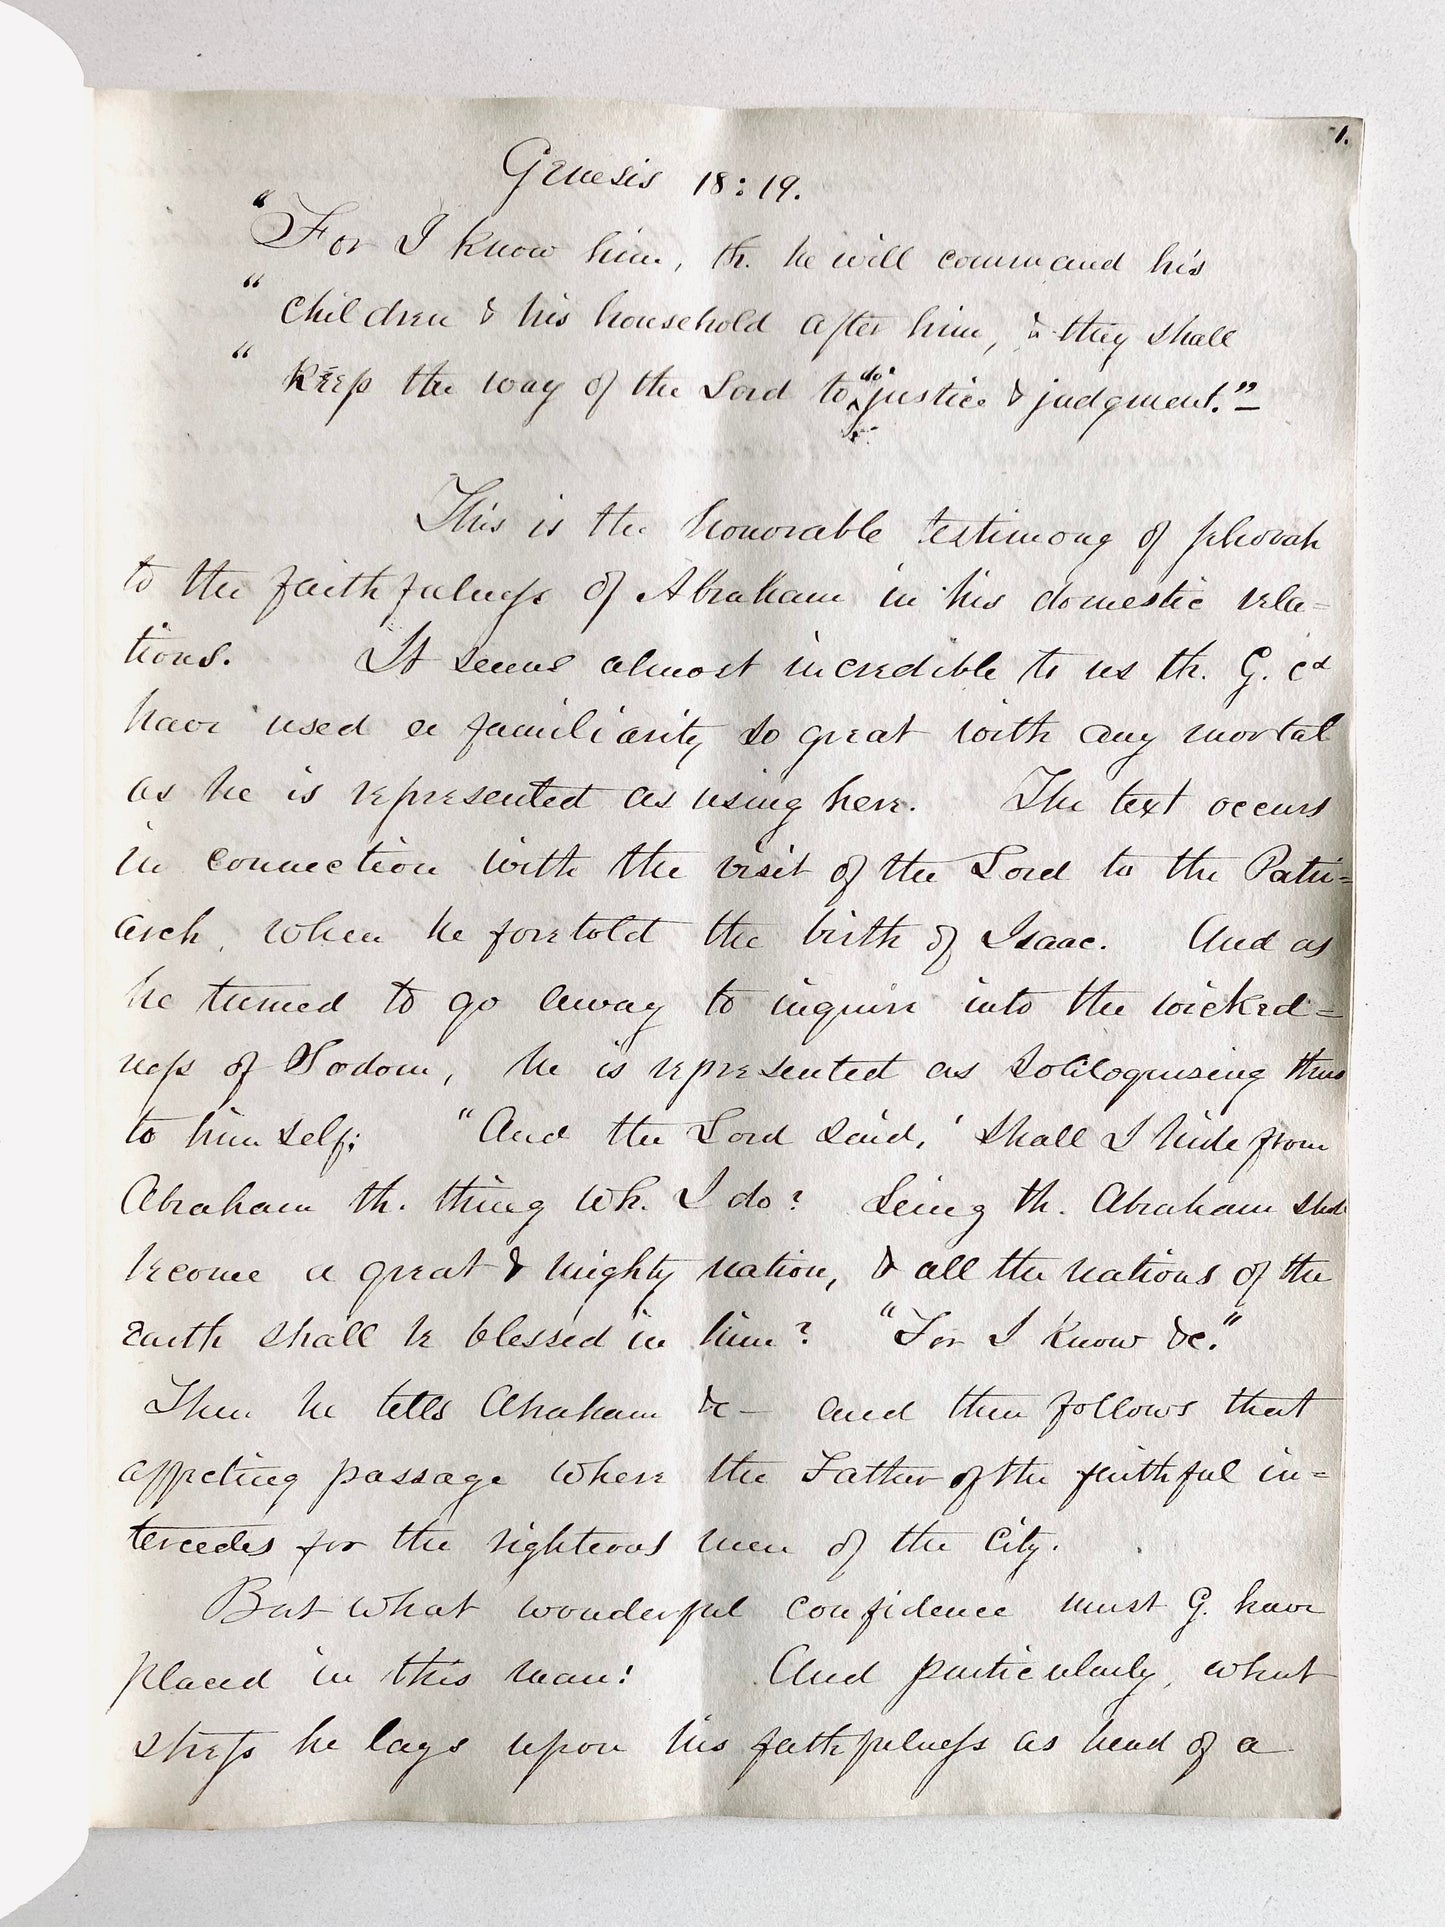 1.
Genesis 18:19.
"For I know him, th. he will command his
" children & his household after him, & they shall
" keep the way of the Lord to do justice & judgment."—
This is the honorable testimony of Jehovah
to the faithfulness of Abraham in his domestic rela=
tions. It seems almost incredible to us th. G. cd
have used a familiarity so great with any mortal
as he is represented as using here. The text occurs
in connection with the visit of the Lord to the Patri=
arch, when he foretold the birth of Isaac. And as
he turned to go away to inquire into the wicked=
ness of Sodom, he is represented as soliloquising thus
to himself; "And the Lord said, 'shall I hide from
Abraham th. thing wh. I do? Seing th. Abraham shal
become a great & mighty nation, & all the nations of the
Earth shall be blessed in him? "For I know &c."
Then he tells Abraham &c — and then follows that
affecting passage where the Father of the faithful in=
tercedes for the righteous men of the City.
But what wonderful confidence must G. have
placed in this man! And particularly, what
stress he lays upon his faithfulness as head of a